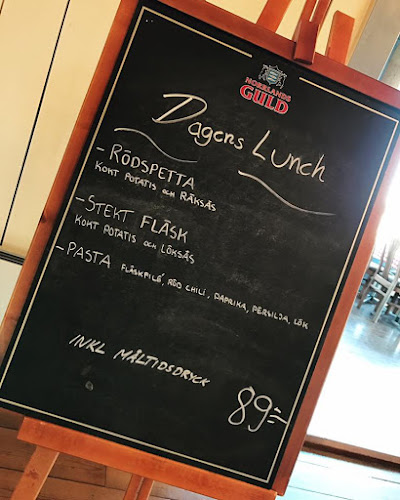 NORRLANDS
GULD
Dagens Lunch
- RÖDSPETTA
KOKT POTATIS och RÄKSÅS
- STEKT FLÄSK
KOKT POTATIS och LÖKSÅS
- PASTA FLÄSKFILÉ, RÖD CHILI, PAPRIKA, PERSILJA, LÖK
INKL MÅLTIDSDRYCK
89:-